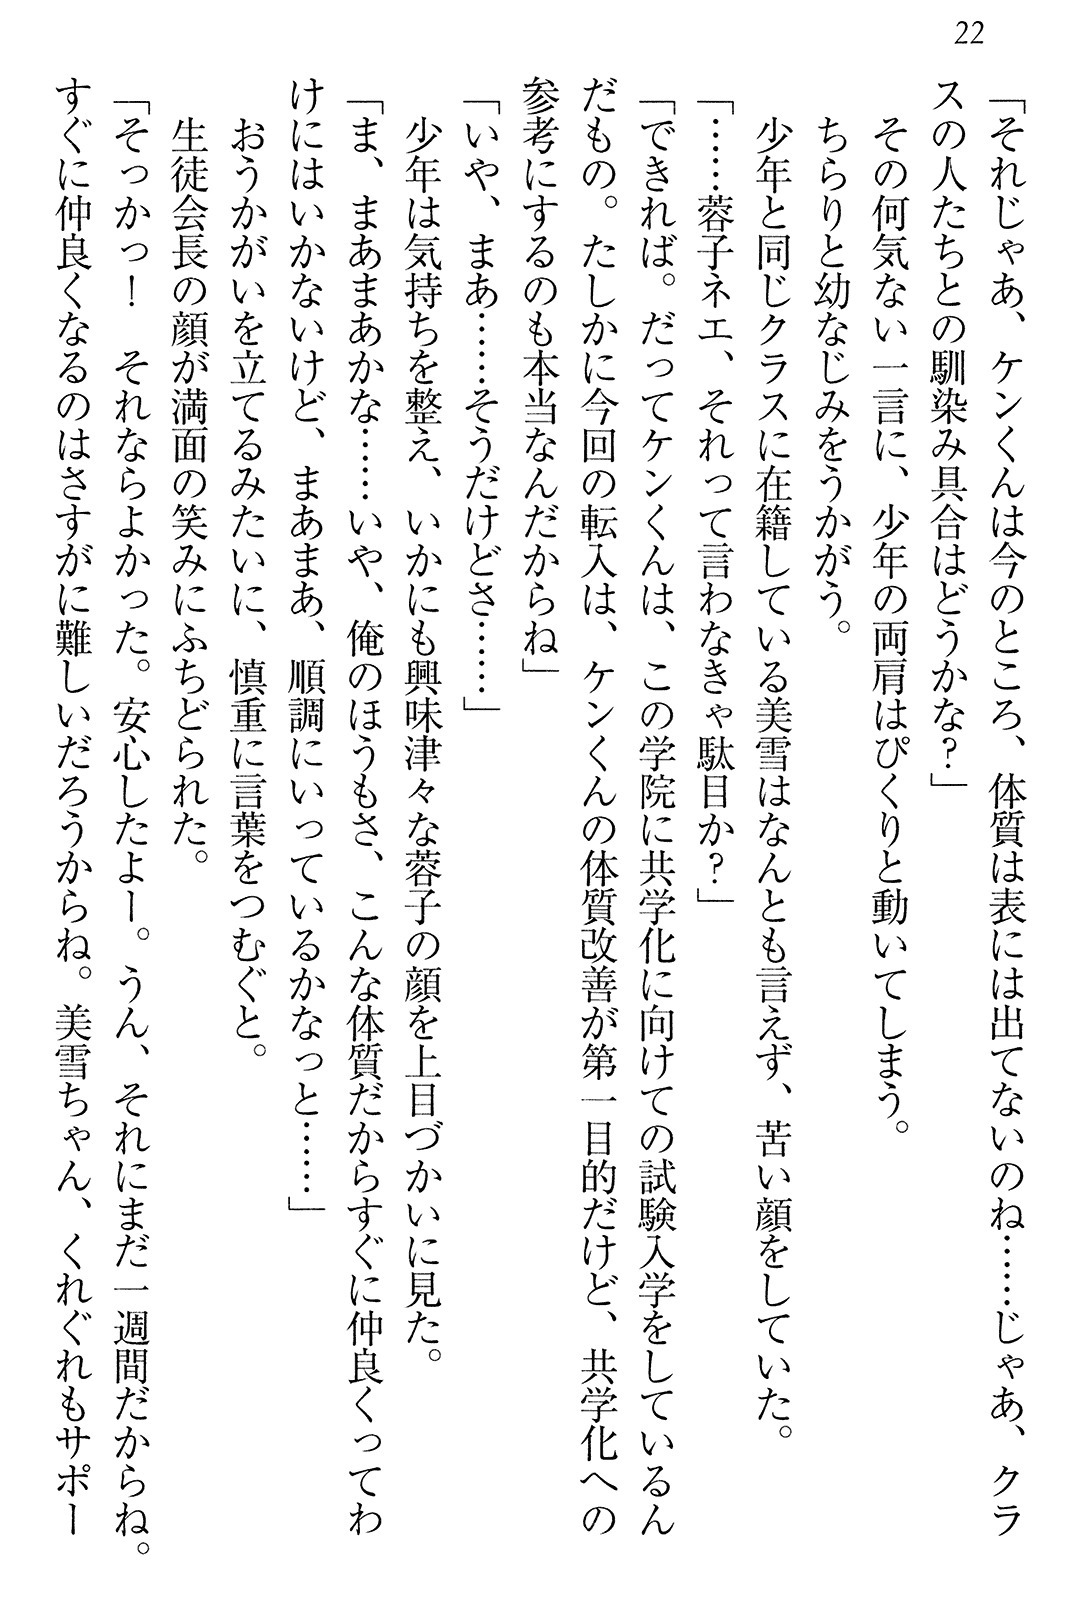 22
「それじゃあ、ケンくんは今のところ、体質は表には出てないのね……じゃあ、クラ
スの人たちとの馴染み具合はどうかな？」
その何気ない一言に、少年の両肩はぴくりと動いてしまう。
ちらりと幼なじみをうかがう。
少年と同じクラスに在籍している美雪はなんとも言えず、苦い顔をしていた。
「……蓉子ネエ、それって言わなきゃ駄目か？」
「できれば。だってケンくんは、この学院に共学化に向けての試験入学をしているん
だもの。たしかに今回の転入は、ケンくんの体質改善が第一目的だけど、共学化への
参考にするのも本当なんだからね」
「いや、まあ……そうだけどさ……」
少年は気持ちを整え、いかにも興味津々な蓉子の顔を上目づかいに見た。
「ま、まあまあかな……いや、俺のほうもさ、こんな体質だからすぐに仲良くってわ
けにはいかないけど、まあまあ、順調にいっているかなっと……」
おうかがいを立てるみたいに、慎重に言葉をつむぐと。
生徒会長の顔が満面の笑みにふちどられた。
「そっかっ！　それならよかった。安心したよー。うん、それにまだ一週間だからね。
すぐに仲良くなるのはさすがに難しいだろうからね。美雪ちゃん、くれぐれもサポー